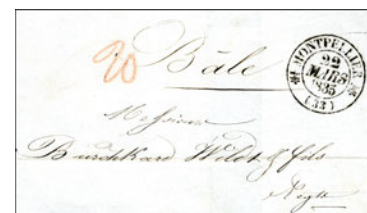 20
Bâle
MONTPELLIER
22
MARS
1835
(33)
Messieurs
Burckhard Wildt & fils